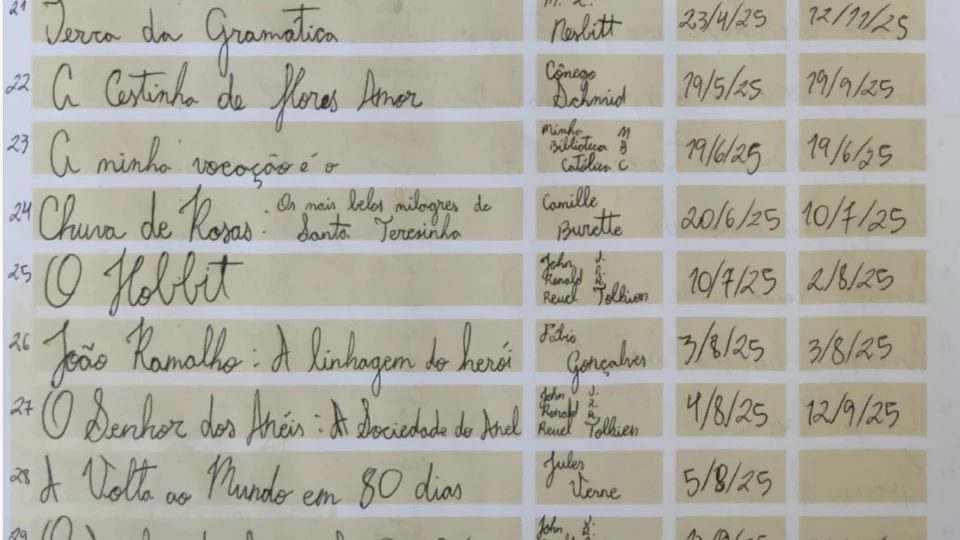 21 Terra da Gramática Nesbitt 23/4/25 12/11/25
22 A Cestinha de flores Amor Cônego Schmid 19/5/25 19/9/25
23 A minha vocação é o Minha Biblioteca Católica M B C 19/6/25 19/6/25
24 Chuva de Rosas: Os mais belos milagres de Santa Teresinha Camille Burette 20/6/25 10/7/25
25 O Hobbit John Ronald Reuel J. R. R. Tolkien 10/7/25 2/8/25
26 João Ramalho: A linhagem do herói Fábio Gonçalves 3/8/25 3/8/25
27 O Senhor dos Anéis: A Sociedade do Anel John Ronald Reuel J. R. R. Tolkien 4/8/25 12/9/25
28 A Volta ao Mundo em 80 dias Jules Verne 5/8/25
29 John